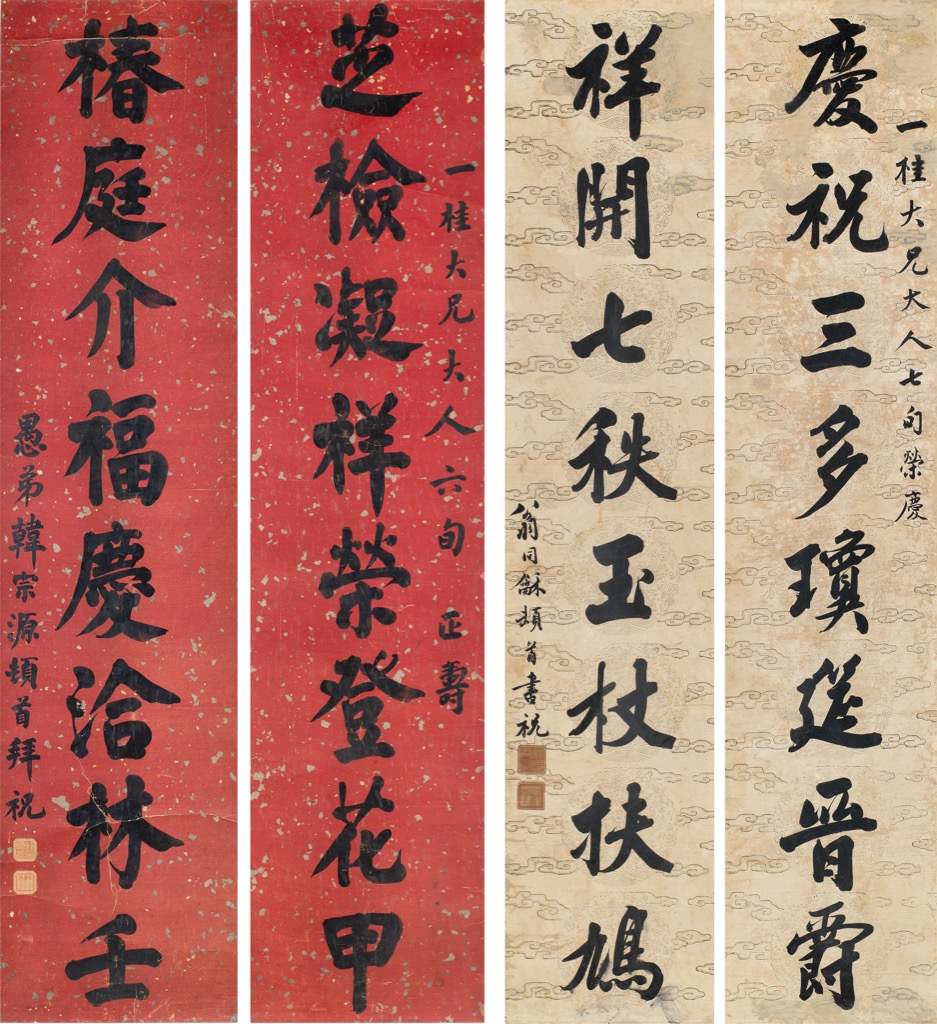 一桂大兄大人七旬榮慶
慶祝三多瓊筵晉爵
祥開七秩玉杖扶鳩
翁同龢頓首書祝
一桂大兄大人六旬正壽
芝檢凝祥榮登花甲
椿庭介福慶洽林壬
愚弟韓宗源頓首拜祝